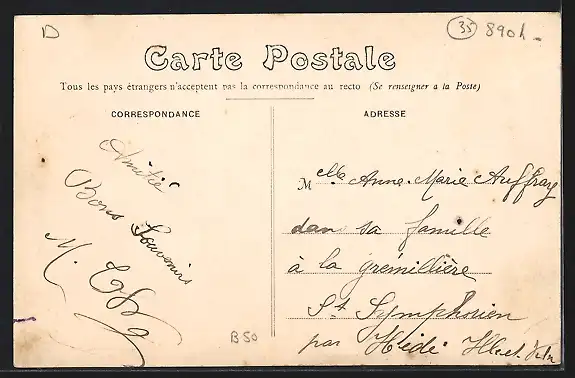 D
35
890h-
Carte Postale
Tous les pays étrangers n'acceptent pas la correspondance au recto (Se renseigner a la Poste)
CORRESPONDANCE
Amitié
Bons Souvenirs
M.
B50
ADRESSE
Mlle Anne-Marie Auffray
dans sa famille
à la grémillière
St Symphorien
par Hédé Ille et